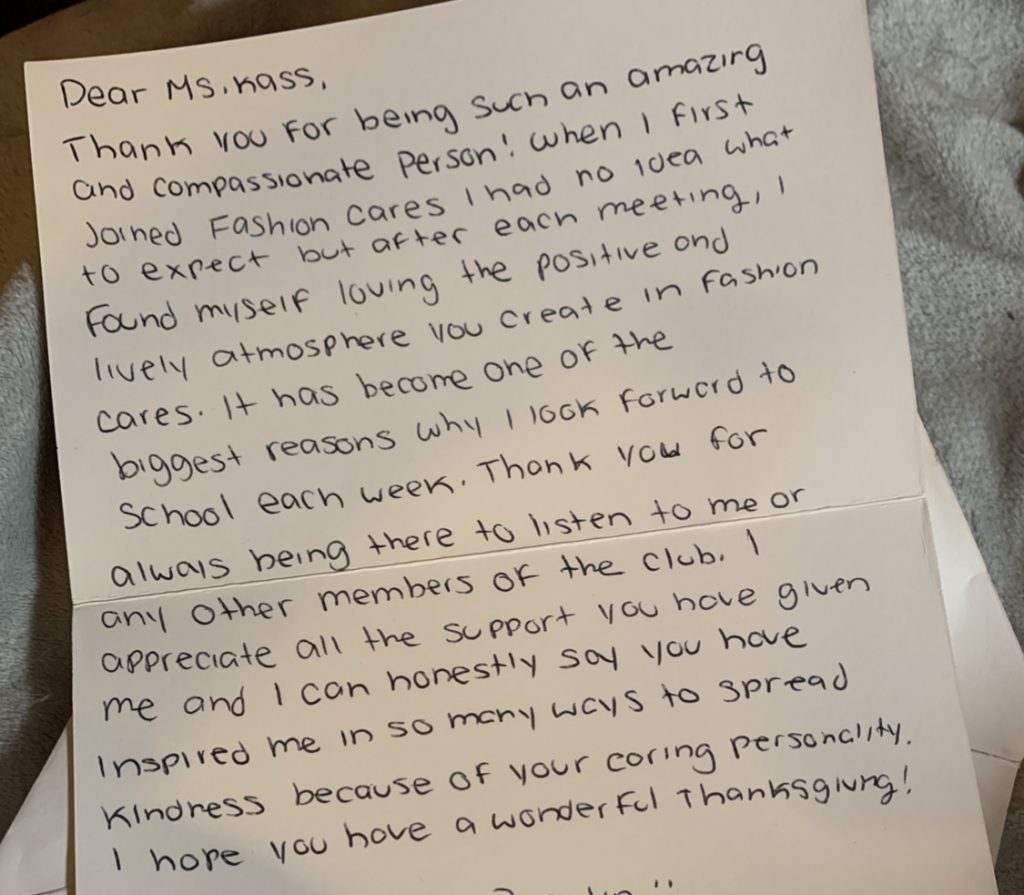 Dear Ms. Kass,
Thank you for being such an amazing
and compassionate person! When I first
joined Fashion Cares I had no idea what
to expect but after each meeting, I
found myself loving the positive and
lively atmosphere you create in Fashion
cares. It has become one of the
biggest reasons why I look forward to
school each week. Thank you for
always being there to listen to me or
any other members of the club. I
appreciate all the support you have given
me and I can honestly say you have
inspired me in so many ways to spread
kindness because of your caring personality.
I hope you have a wonderful Thanksgiving!